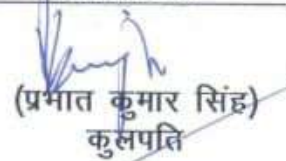 (प्रभात कुमार सिंह)
कुलपति